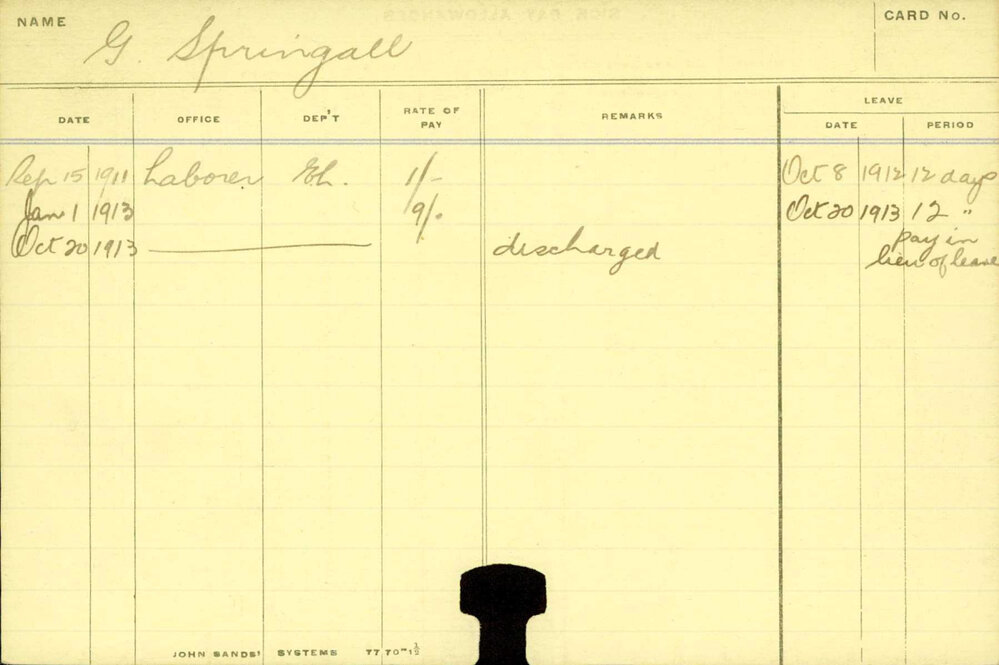 NAME G. Springall CARD No.
DATE OFFICE DEP'T RATE OF PAY REMARKS LEAVE DATE PERIOD
Sep 15 1911 Laborer El. 1/- Oct 8 1912 12 days
Jan 1 1913 9/. Oct 20 1913 12 "
Oct 20 1913 discharged pay in
lieu of leave
JOHN SANDS' SYSTEMS 77 70